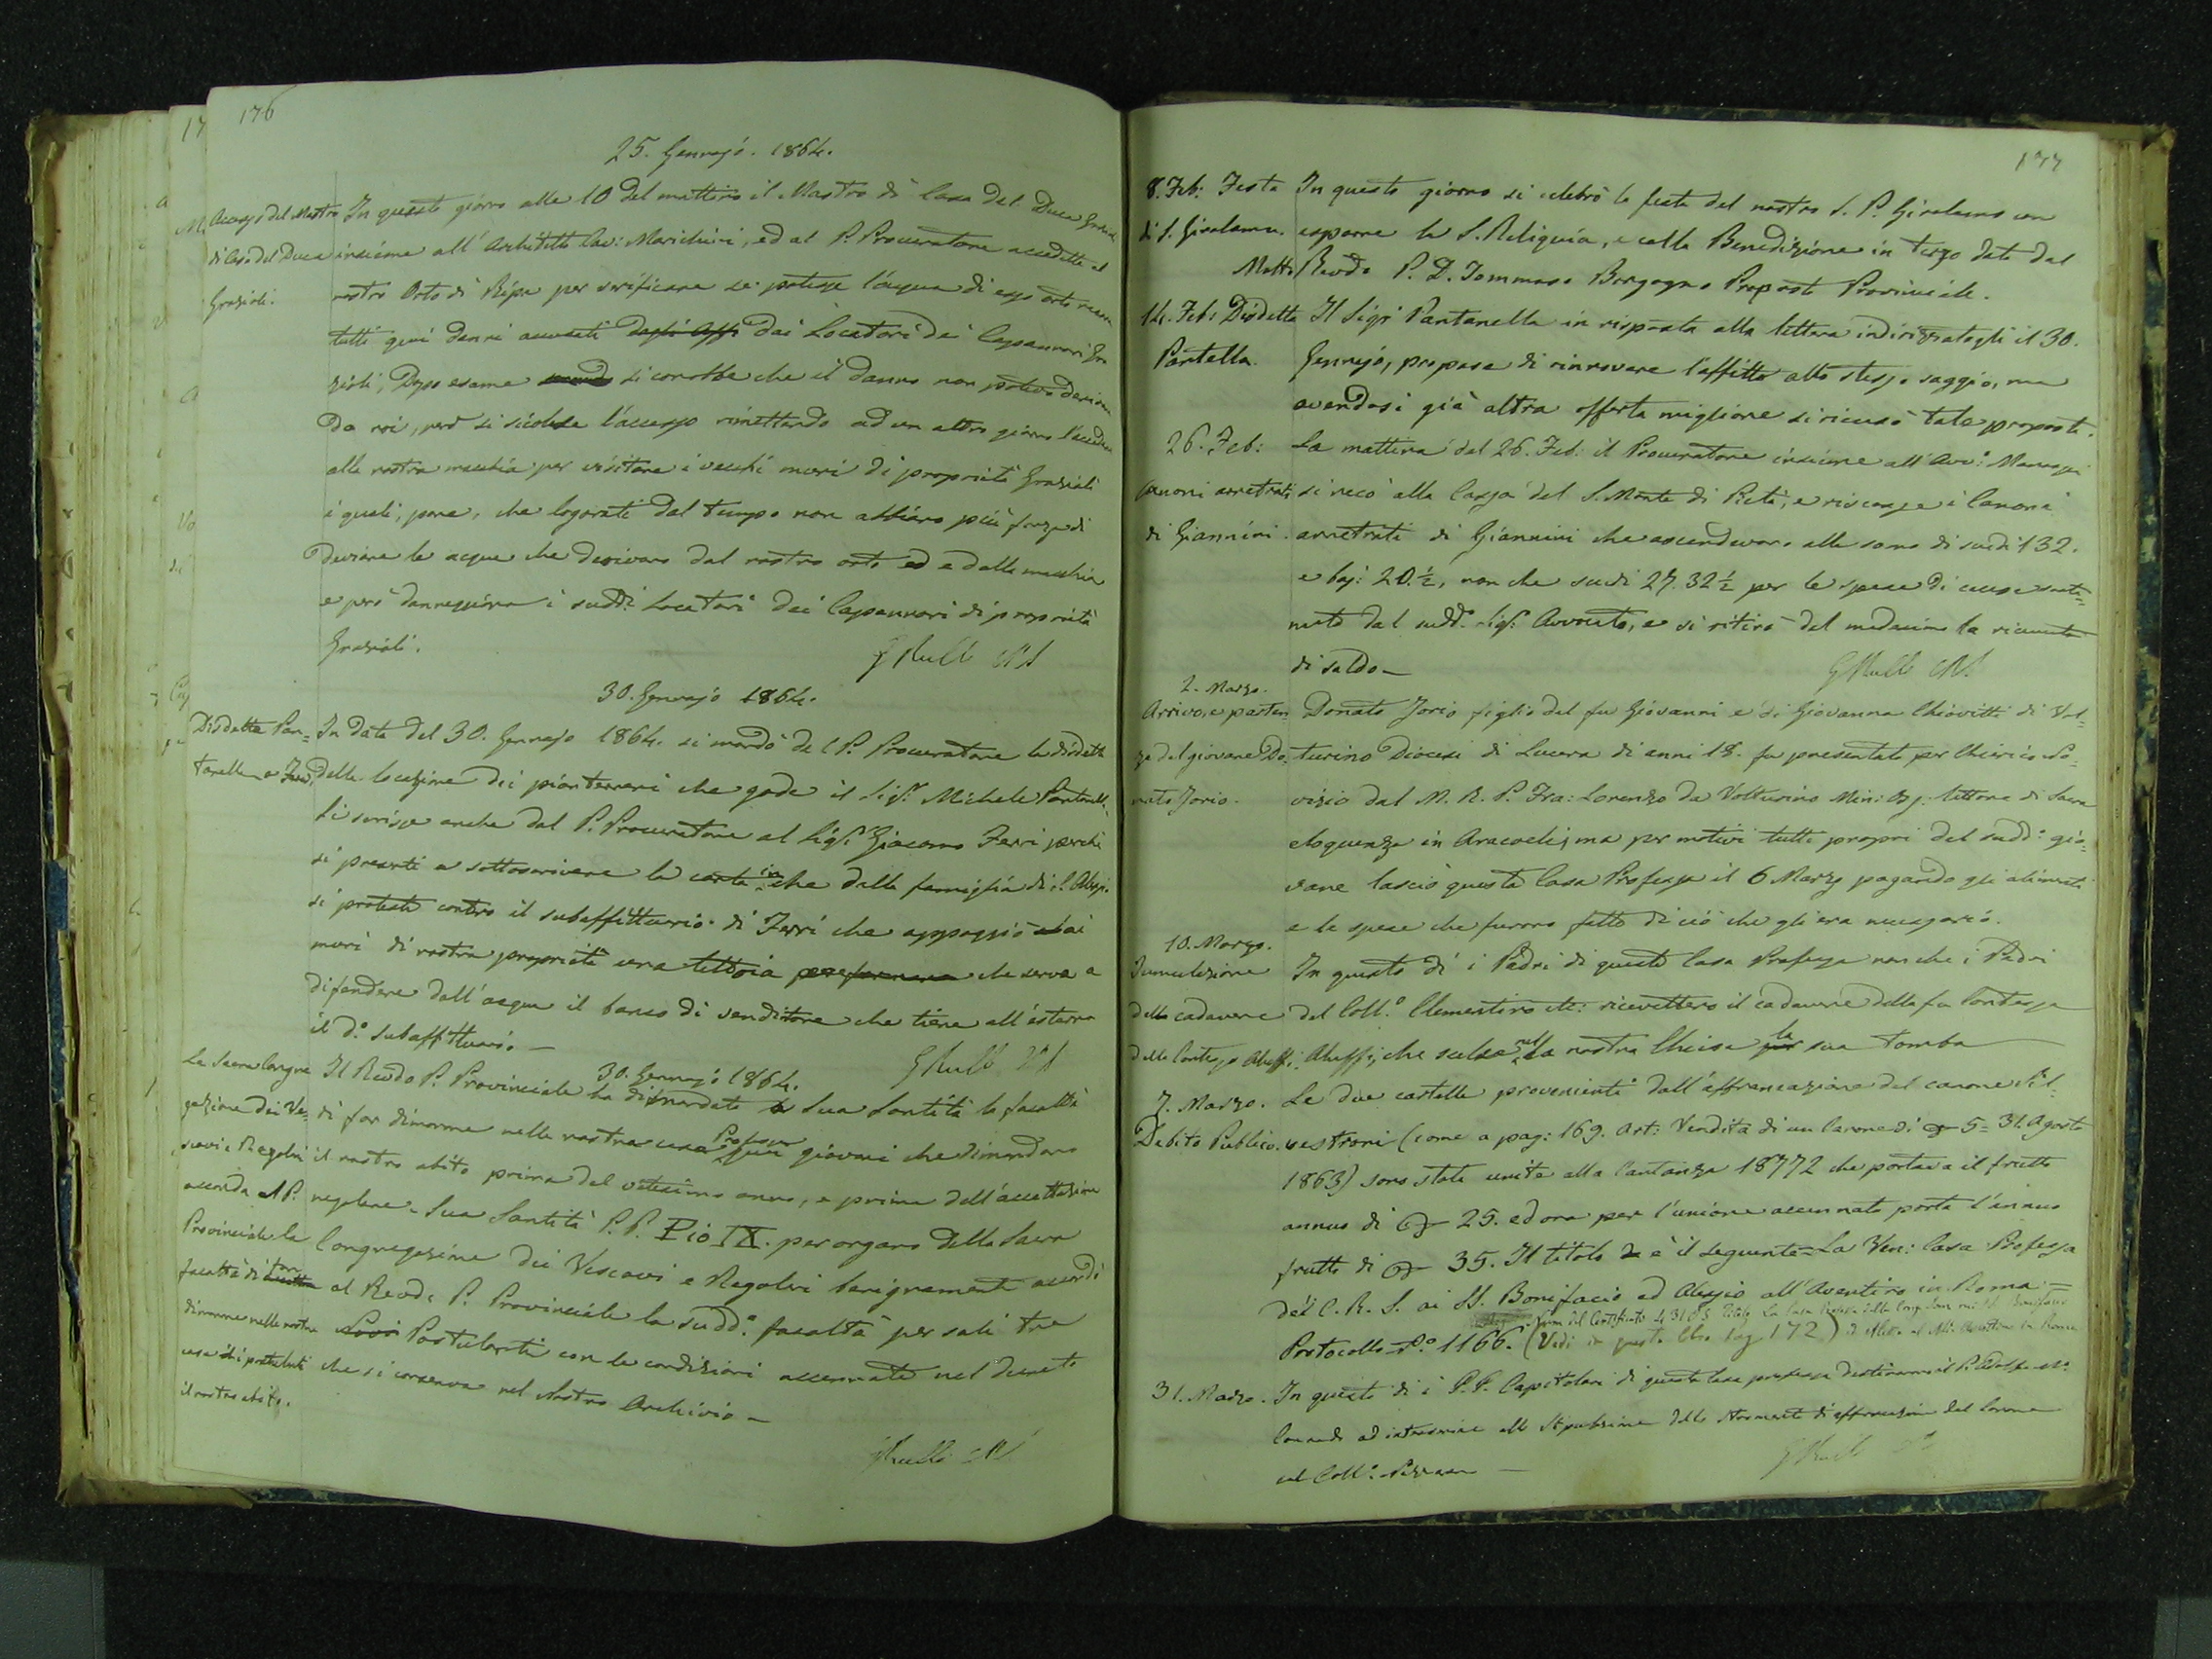 176
25. Gennajo. 1864.
Accesso del Mastro
di Casa del Duca
Grazioli.
In questo giorno alle 10 del mattino il Mastro di Casa del Duca
insieme all'Architetto Cav: Marichini, ed al P. Procuratore accedette al
nostro Orto di Ripa per verificare se potesse l'acqua di esso orto
tutti quei danni accusati dagli Affi dai Locatori dei Capannoni
zioli; Dopo esame si conobbe che il danno non poteva
da noi, però si sciolse l'accesso rimettendo ad un altro giorno
alla nostra macchia per visitare i vecchi muri di proprietà Grazioli
i quali, pare, che logorati dal tempo non abbiano più forza di
deviare le acque che derivano dal nostro orto ed e dalla macchia
e però danneggiano i sudd.i Locatari dei Capannoni di proprietà
Grazioli.
G Rulli CRS
30. Gennajo 1864.
Disdetta Pan=
tanella e Ferri
In data del 30. Gennajo 1864. si mandò dal P. Procuratore la disdetta
della locazione dei pianterreni che gode il Sig.r Michele Pantanella.
Si scrisse anche dal P. Procuratore al Sig.r Giacomo Ferri perchè
si presenti a sottoscrivere la carta in che dalla famiglia di S. Alessio
si protesta contro il subaffittuario di Ferri che appoggiò ai
muri di nostra proprietà una tettoia che serva a
difendere dall'acqua il banco di venditore che tiene all'esterno
il d.o subaffittuario. —
G Rulli CRS
30. Gennajo 1864.
La Sacra Congre
gazione dei Ve=
scovi e Regolari
accorda al P.
Provinciale la
facoltà di far
dimorare nella nostra
casa i postulanti
il nostro abito.
Il Rev.do P. Provinciale ha dimandato a Sua Santità la facoltà
di far dimorare nella nostra casa Professa giovani che dimandano
il nostro abito prima del ventesimo anno, e prima dell'accettazione
regolare. Sua Santità P. P. Pio IX. per organo della Sacra
Congregazione dei Vescovi e Regolari benignamente accordò
al Rev.do P. Provinciale la sudd.a facoltà per soli tre
Postulanti con le condizioni accennate nel decreto
che si conserva nel Nostro Archivio —
G Rulli CRS
177
8. Feb: Festa
di S. Girolamo.
In questo giorno si celebrò la festa del nostro S. P. Girolamo con
esporre la S. Reliquia, e colla Benedizione in terzo data dal
Molto Revdo P. D. Tommaso Borgogno Preposto Provinciale.
14. Feb: Disdetta
Pantella.
Il Sig.r Pantanella in risposta alla lettera indirizzatagli il 30.
Gennajo, propose di rinnovare l'affitto allo stesso saggio, ma
avendosi già altra offerta migliore si ricusò tale proposta.
26. Feb:
Canoni arretrati
di Giannini.
La mattina del 26. Feb: il Procuratore insieme all'Avv:
si recò alla Cassa del S. Monte di Pietà, e riscosse i Canoni
arretrati di Giannini che ascendevano alla soma di scudi 132.
e baj: 20.½, non che scudi 27.32½ per le spese di causa soste=
nute dal sudd.o Sig.r Avvocato, e si ritirò dal medesimo la ricevuta
di saldo —
G Rulli CRS.
2. Marzo.
Arrivo, e parten
za del giovane Do=
nato Jorio.
Donato Jorio figlio del fu Giovanni e di Giovanna Chiovitti di Vol=
turino Diocesi di Lucera di anni 18. fu presentato per Chierico No=
vizio dal M. R. P. Fra: Lorenzo da Volturino Min: Oss: lettore di Sacra
eloquenza in Aracoeli; ma per motivi tutti propri del sudd.o gio=
vane lasciò questa Casa Professa il 6 Marzo pagando gli alimenti
e le spese che furono fatte di ciò che gli era necessario.
10. Marzo.
Tumulazione
del cadavere
della Contessa
In questo dì i Padri di questa Casa Professa non che i Padri
del Coll.o Clementino etc: ricevettero il cadavere della fu Contessa
che scelse nella nostra Chiesa la sua tomba —
7. Marzo.
Debito Publico.
Le due cartelle provenienti dall'affrancazione del canone Sil=
vestroni (come a pag: 169. Art: Vendita di un Canone di 5= 31. Agosto
1863) sono state unite alla Cartanza 18772 che portava il frutto
annuo di 25. ed ora per l'unione accennata porta l'annuo
frutto di 35. Il titolo è il seguente - La Ven: Casa Professa
dei C. R. S. ai SS. Bonifacio ed Alessio all'Aventino in Roma =
Protocollo N.o 1166. (Vedi in questo libro pag 172)
31. Marzo.
In questo di i P.P. Capitolari di questa Casa professa destinarono il P.
ad intervenire alla Stipulazione dello Stromento di affrancazione del Canone
col Coll.o Nazareno —
G Rulli